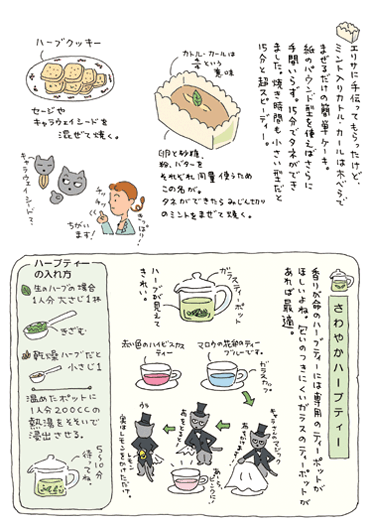 エリサに手伝ってもらったけど、
ミント入りカトル・カールは木べらで
まぜるだけの簡単ケーキ。
紙のパウンド型を使えばさらに
手間いらず。15分でタネができ
ました。焼き時間も小さい型だと
15分と超スピーディー。
カトル・カールは
という
意味
卵と砂糖、
粉、バターを
それぞれ同量使うため
この名が。
タネができたらみじん切り
のミントをまぜて焼く。
ハーブクッキー
セージや
キャラウェイシードを
混ぜて焼く。
キャラウェイシードって
チッチッチッ
ちがいます!
さわやかハーブティー
香りが命のハーブティーには専用のティーポットが
ほしいよね。匂いのつきにくいガラスのティーポットが
あれば最適。
ガラスティーポット
ハーブが見えて
きれい。
マロウの花の
ティー
ブルーです。
赤い色のハイビスカス
ティー
ガラスカップ
キャラさんのマジック
あらっ
ピンクに!
うっ
実はレモンをかけただけ。
レモン
ハーブティー
の入れ方
生のハーブの場合
1人分大さじ1杯
きざむ
乾燥ハーブだと
小さじ1
温めたポットに
1人分200CCの
熱湯をそそいで
浸出させる。
5〜10分
待っててね。